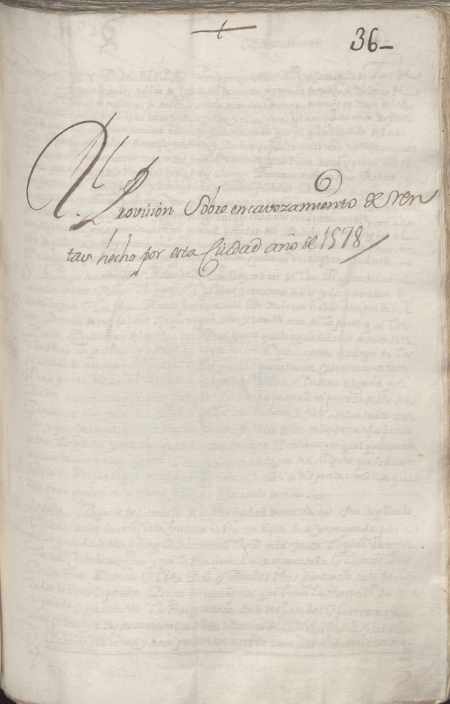 36
Rl. Provision Sobre encavezamiento de Ren
tas hecho por esta Ciudad año de 1578